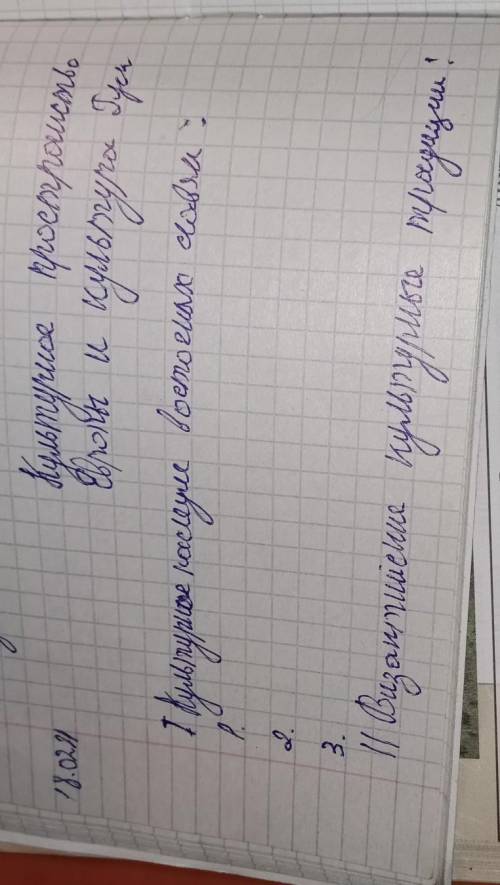 18.02
Культурное пространство
Европы и культура Руси
I Культурное наследие восточных славян:
1.
2.
3.
II Византийские культурные традиции: